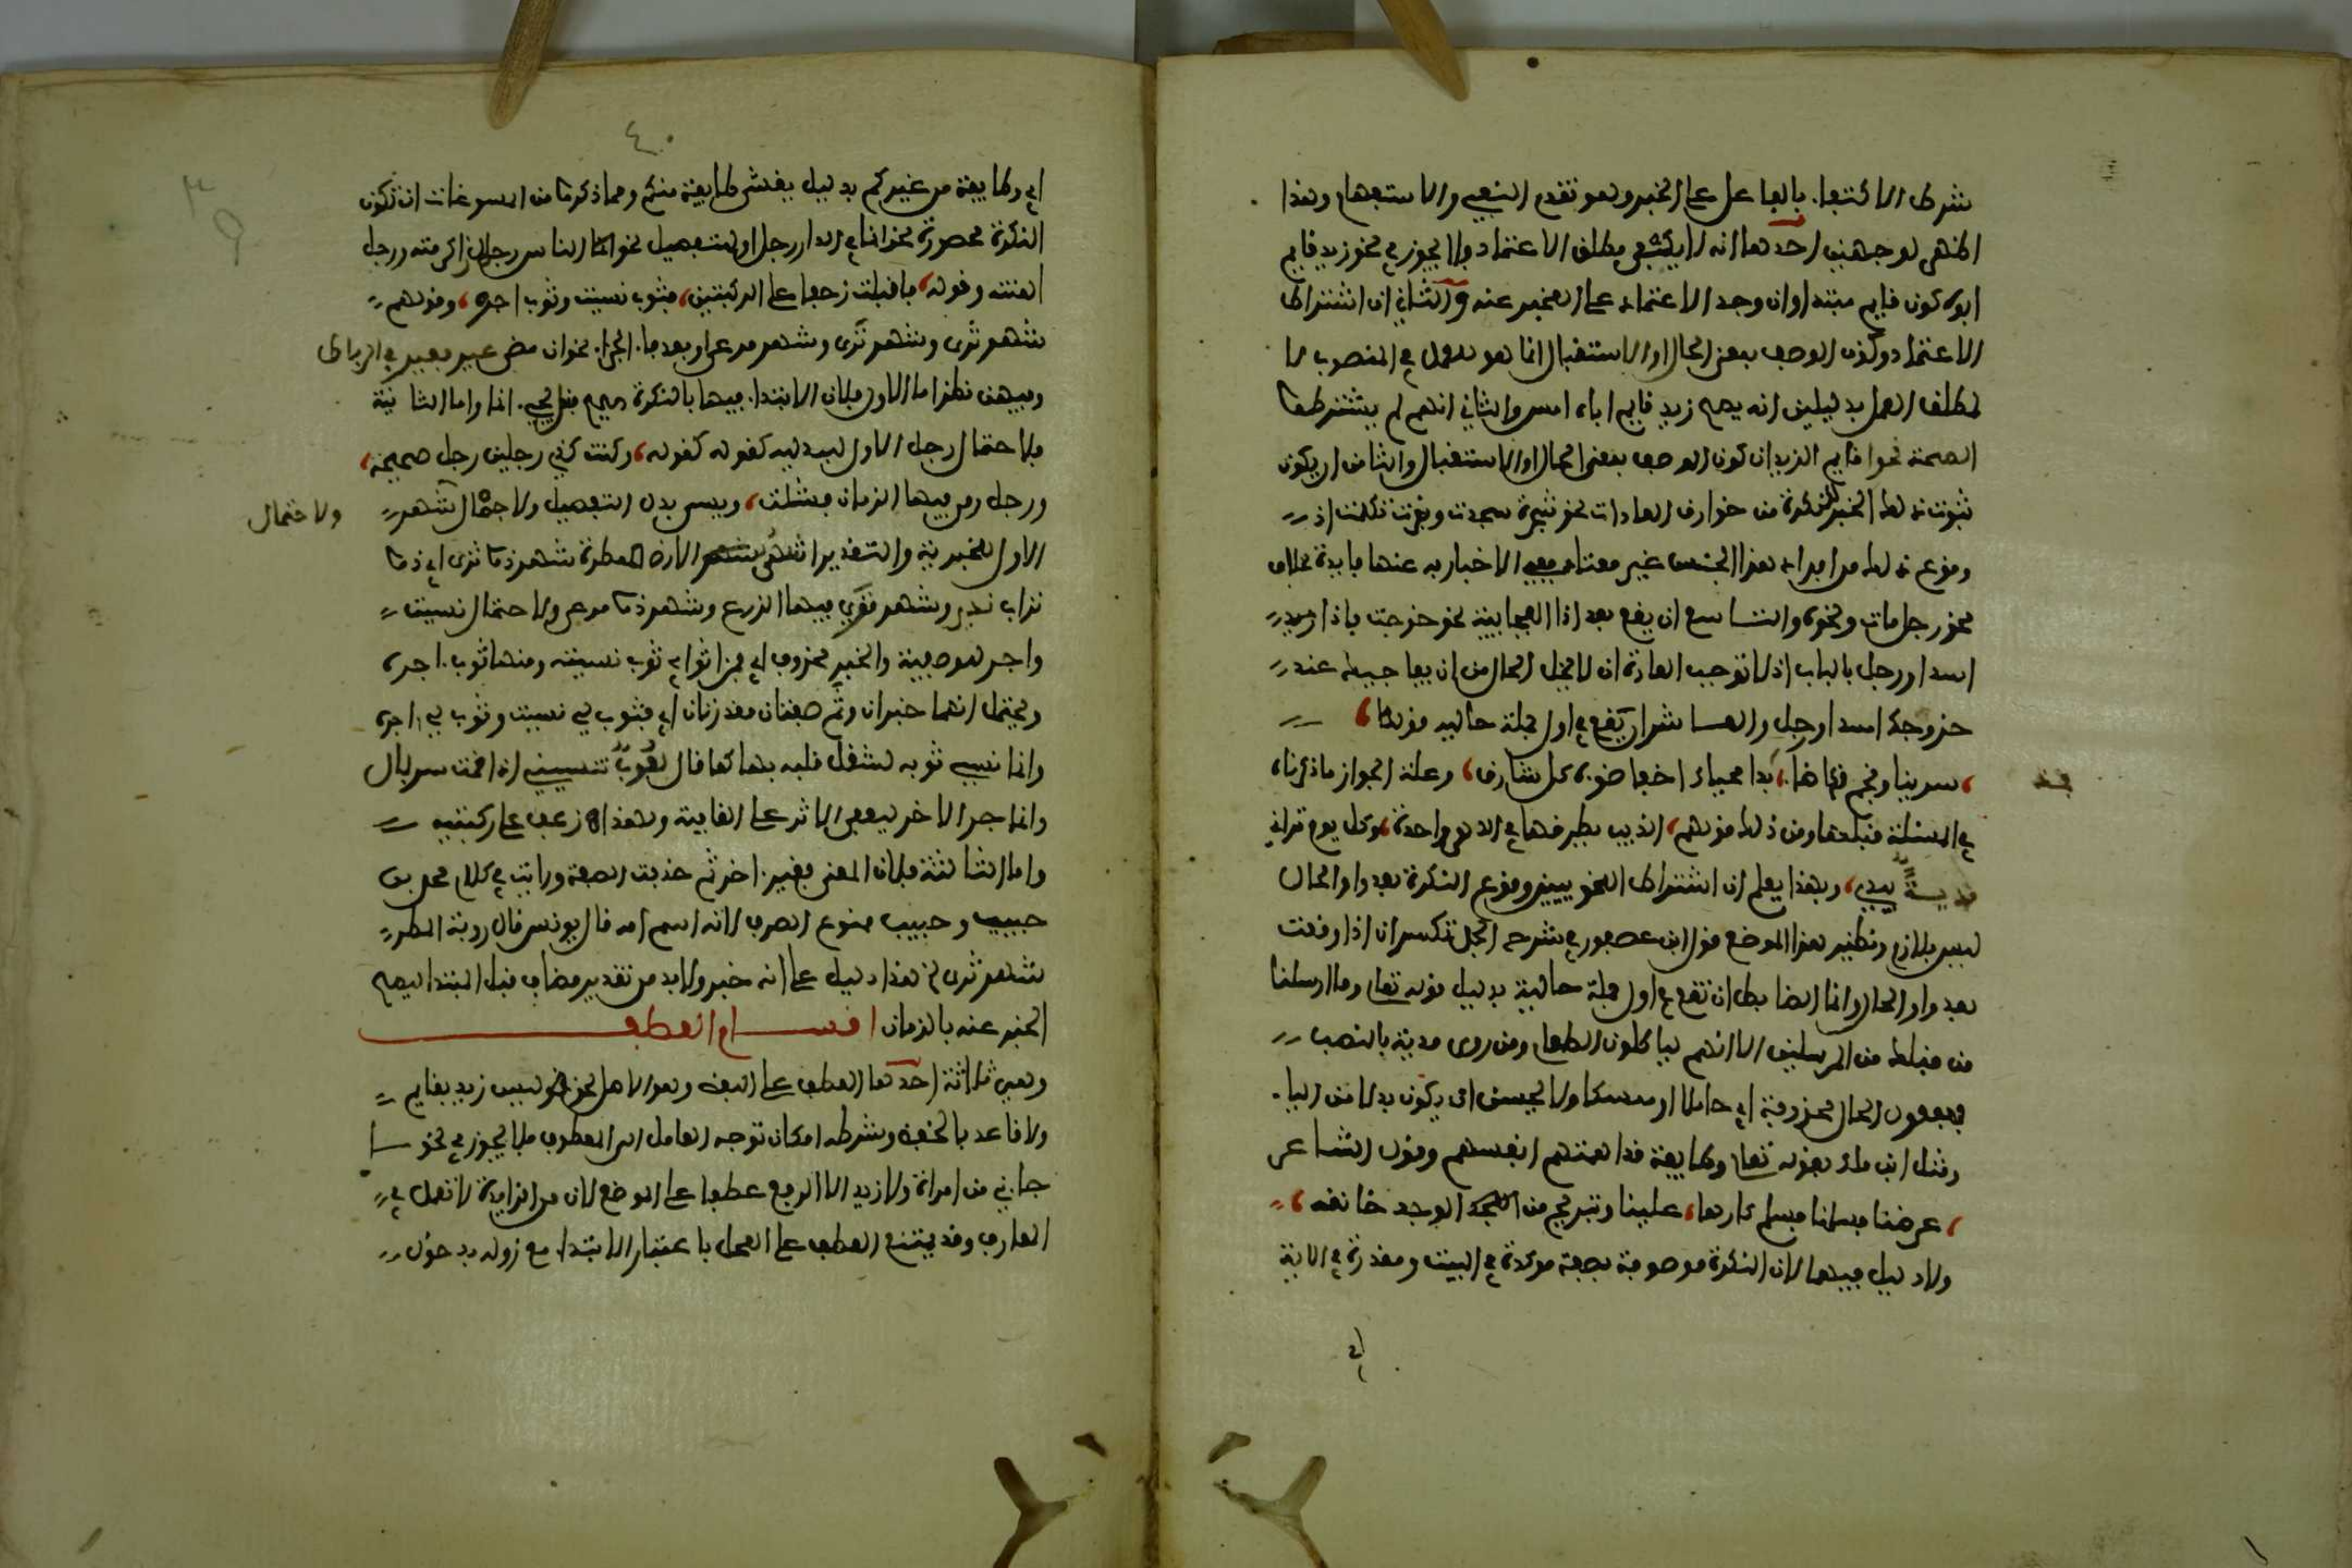 شرط الاكتفاء بالفاعل على الخبر وهو تقدم النفي والاستفهام وهذا
اظهر لوجهين احدهما انه لا يكفي مطلق الاعتماد فلا يجوز في نحو زيد قايم
ابوه كون قايم مبتدا وان وجد الاعتماد على المخبر عنه والثاني ان اشتراط
الاعتماد وكون الوصف بمعنى الحال او الاستقبال انما هو للعمل في المنصوب لا
لمطلق العمل بدليلين انه يصح زيد قايم اباه امس والثاني انهم لم يشترطوا
لصحة نحو اقايم الزيدان كون الوصف بمعنى الحال او الاستقبال والثامن ان يكون
ثبوت ذلك الخبر للنكرة من خوارق العادات نحو شجرة سجدت وبقرة تكلمت اذ
وقوع ذلك من افراد هذا الجنس غير معتاد ففي الاخبار به عنها فايدة بخلاف
نحو رجل مات ونحوه والتاسع ان يقع بعد اذا الفجايية نحو خرجت فاذا
اسد او رجل بالباب اذ لا توجب العادة ان لا يخلو الحال من ان يفاجيك عند
خروجك اسد او رجل والعاشر ان تقع في اول جملة حالية كقوله
سرينا ونجم قد اضاء فمذ بدا محياك اخفى ضوءه كل شارق وعلة الجواز ما ذكرناه
في المسئلة قبلها ومن ذلك قولهم الذيب يطرقها في الدهر واحدة وكل يوم تراني
مدية بيدي وبهذا يعلم ان اشتراط النحويين وقوع النكرة بعد واو الحال
ليس بلازم ونظير هذا الموضع قول ابن عصفور في شرح الجمل تكسر ان اذا وقعت
بعد واو الحال وانما الضابط ان تقع في اول جملة حالية بدليل قوله تعالى وما ارسلنا
من قبلك من المرسلين الا انهم لياكلون الطعام ومن روى مدية بالنصب
فمفعول الحال محذوفة اي حاملا او ممسكا ولا يحسن ان يكون بدلا من الياء
ومثل ابن مالك بقوله تعالى وطايفة قد اهمتهم انفسهم وقول الشاعر
عرضنا فسلمنا فسلم كارها علينا وتبريح من الوجد خانقه
ولا دليل فيهما لان النكرة موصوفة بصفة مذكورة في البيت ومقدرة في الاية
اي
٤٠
٣٩
اي وطايفة من غيركم بدليل يغشى طايفة منكم ومما ذكروا من المسوغات ان تكون
النكرة محصورة نحو انما في الدار رجل او للتفصيل نحو الناس رجلان رجل اكرمته ورجل
اهنته وقوله فاقبلت زحفا على الركبتين فثوب نسيت وثوب اجره وقولهم
شهر ثرى وشهر ترى وشهر مرعى او بعد فاء الجزاء نحو ان مضى عير فعير في الرباط
وفيهن نظر اما الاولى فلان الابتداء فيها بالنكرة صحيح قبل مجيء انما واما الثانية
فلاحتمال رجل الاول للبدلية كقوله كقوله وكنت كذي رجلين رجل صحيحة
ورجل رمى فيها الزمان فشلت ويسمى بدل التفصيل ولاحتمال شهر
ولاحتمال
الاول للخبرية والتقدير اشهر الارض الممطورة شهر ذو ثرى اي ذو
تراب ند وشهر ترى فيها الزرع وشهر ذو مرعى ولاحتمال نسيت
واجر للوصفية والخبر محذوف اي فمن اثوابي ثوب نسيته ومنها ثوب اجره
ويحتمل انهما خبران وثم صفتان مقدرتان اي فثوب لي نسيت وثوب لي اجره
وانما نسي ثوبه لشغل قلبه بها كما قال لعوب تنسيني اذا قمت سربال
وانما جر الاخر ليعفي الاثر على القافية ولهذا زحف على ركبتيه
واما الثالثة فلان المعنى فعير اخر ثم حذفت الصفة ورايت في كلام محمد بن
حبيب وحبيب ممنوع الصرف لانه اسم امه قال يونس قال روبة المطر
شهر ثرى الخ وهذا دليل على انه خبر ولا بد من تقدير مضاف قبل المبتدا ليصح
الخبر عنه بالزمان اقسام العطف
وهي ثلاثة احدها العطف على اللفظ وهو الاصل نحو ليس زيد بقايم
ولا قاعد بالخفض وشرطه امكان توجه العامل الى المعطوف فلا يجوز في نحو ما
جاءني من امراة ولا زيد الا الرفع عطفا على الموضع لان من الزايدة لا تعمل في
المعارف وقد يمتنع العطف على المحل باعتبار الابتداء مع زواله بدخول